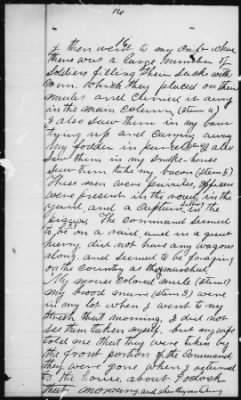 16
I then went to my crib where
there was a large number of
Soldiers filling their sacks with
Corn. Which they placed on their
mules and Carried it away
in the main Column (Item 4)
I also saw them in my barn
tying up and Carrying away
My fodder in parcels I also
saw them in my smoke-house
Saw them take my bacon (Item 5)
These men were privates, officers
were present in the road, in the
yard, and a Captain in the
The Command seemed
to be on a raid, and in a great
hurry, did not have any wagons
along, and seemed to be foraging
on the Country as they marched.
My mouse Colored mule (Item 1)
my brood mare (Item 3) were
in my lot when I went to my
that morning, I did not
see them taken myself, but my wife
told me that they were taken by
the front portion of the Command
they were gone when I returned
to the house, about 9 oclock
that morning and when they were